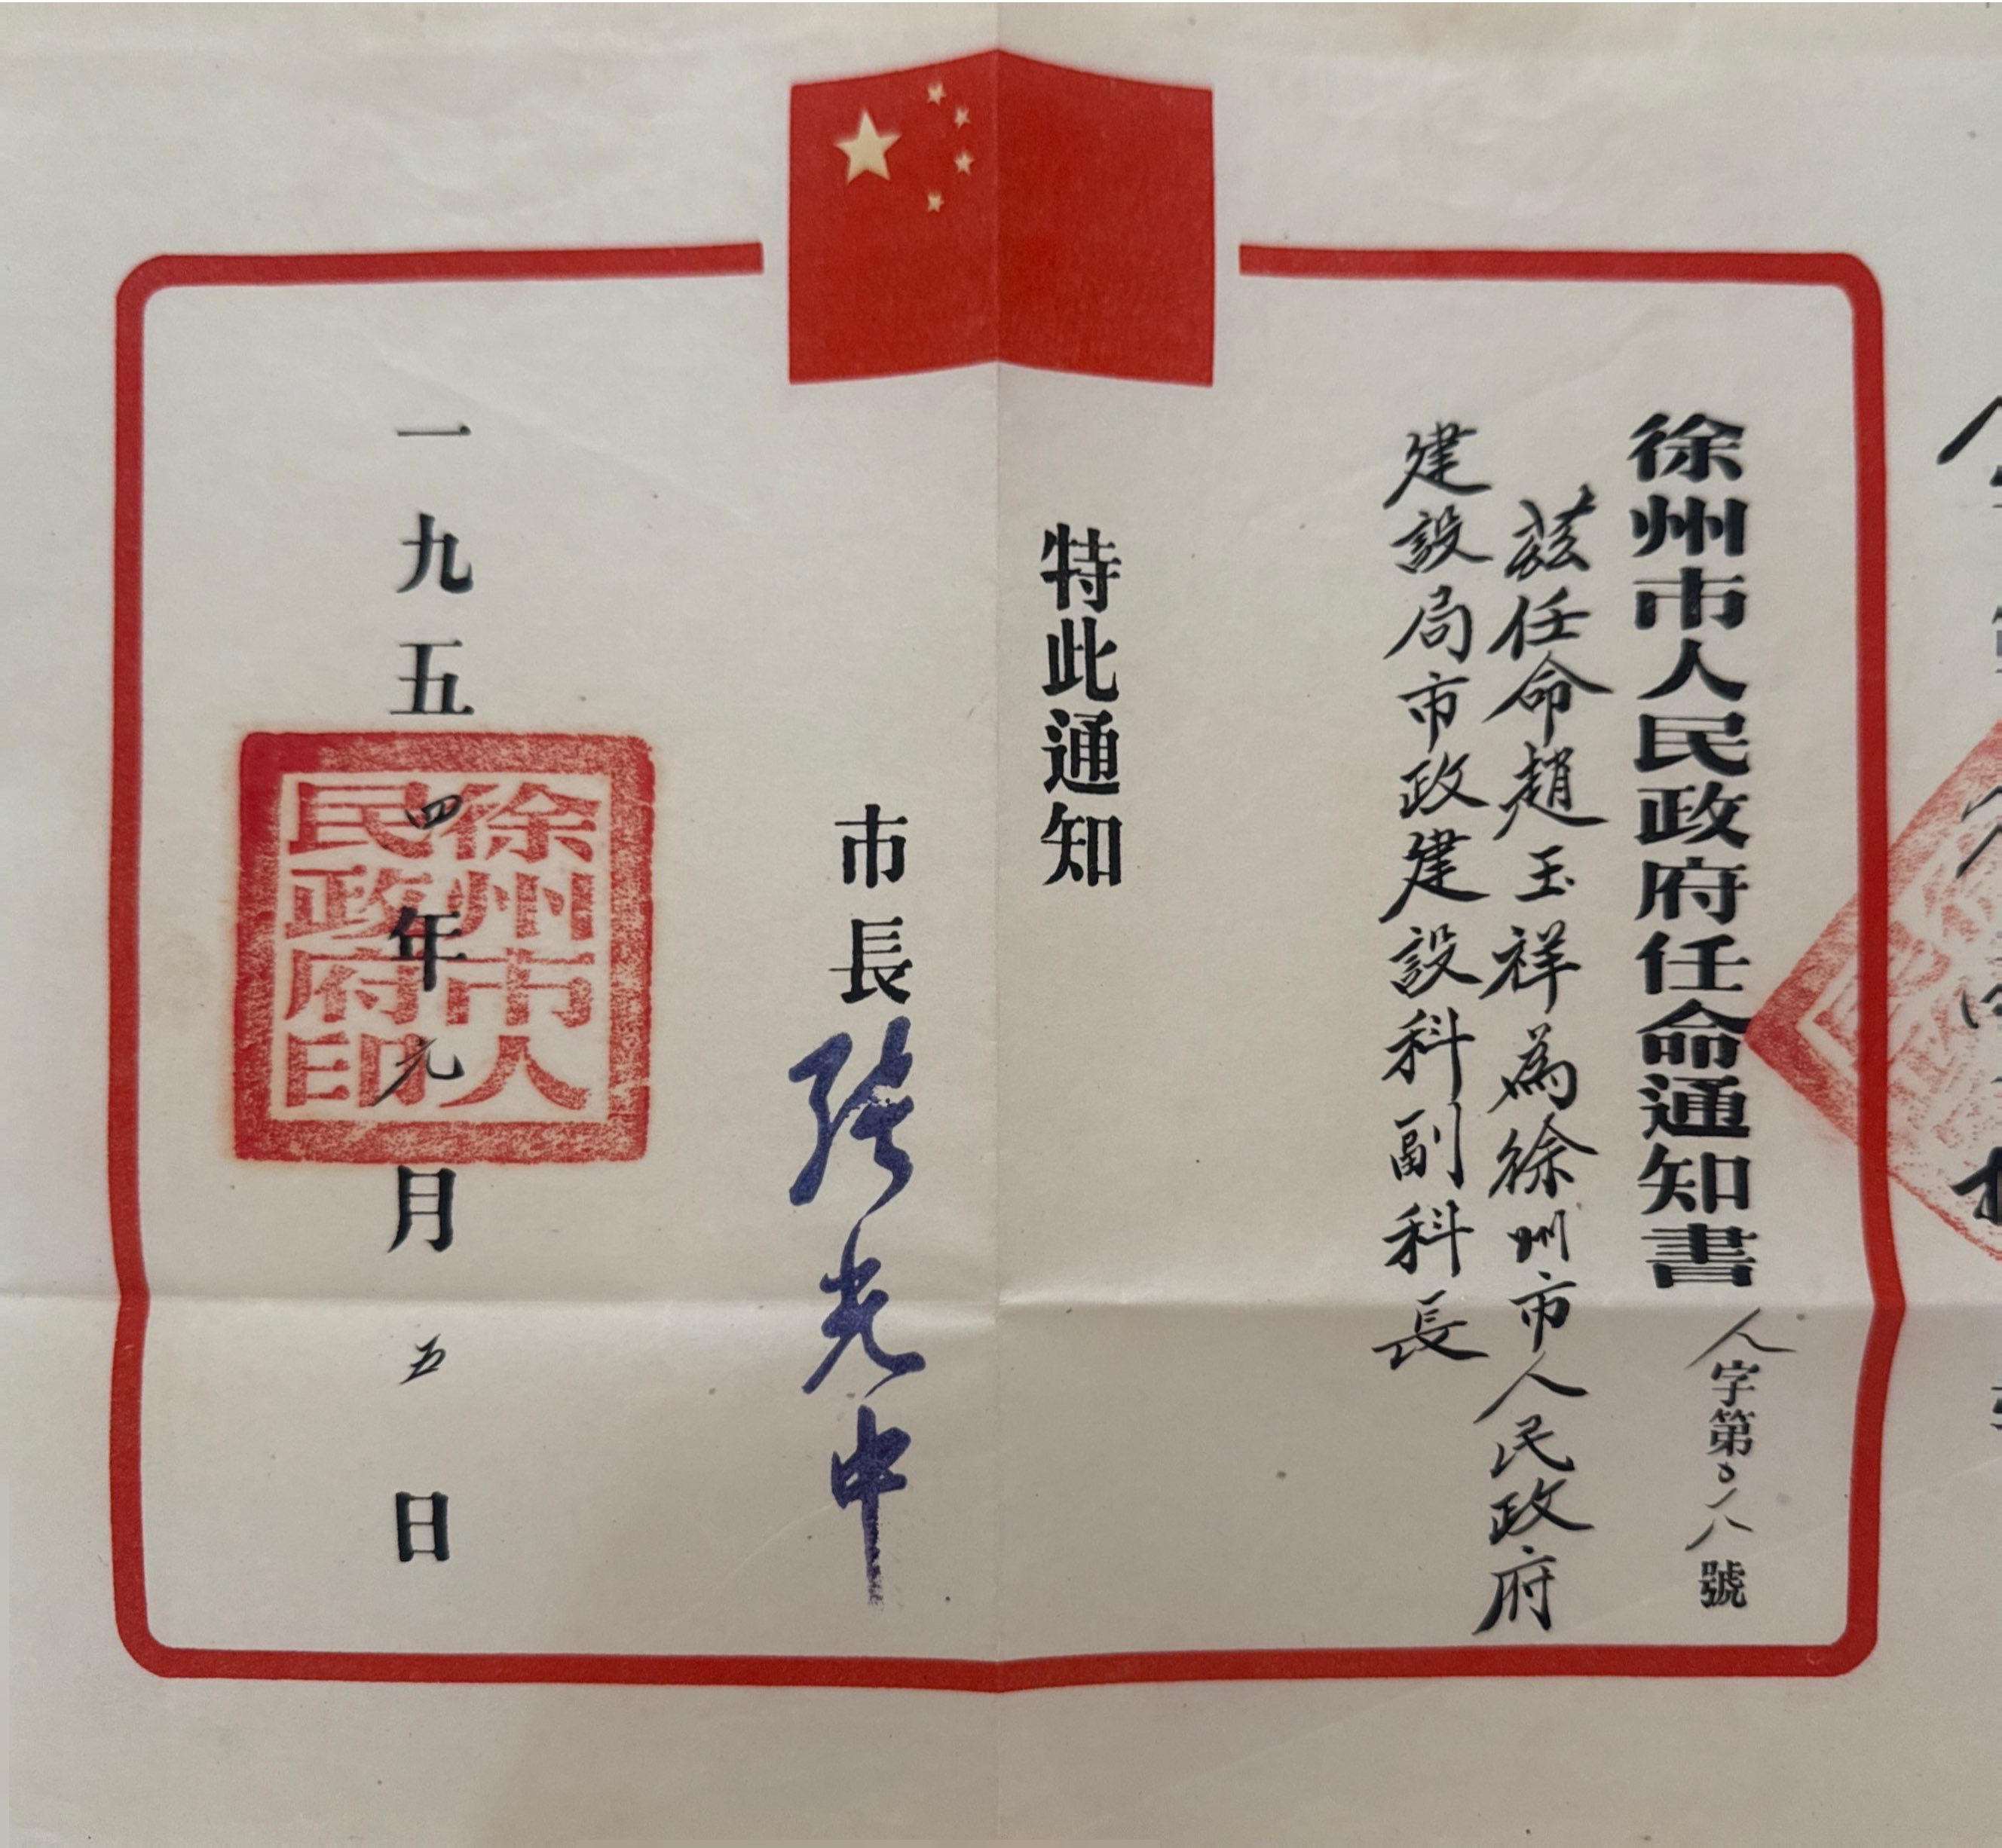 徐州市人民政府任命通知書 人字第〇一八號
茲任命趙玉祥為徐州市人民政府
建設局市政建設科副科長
特此通知
市長 張光中
一九五四年元月五日
徐州市人
民政府印